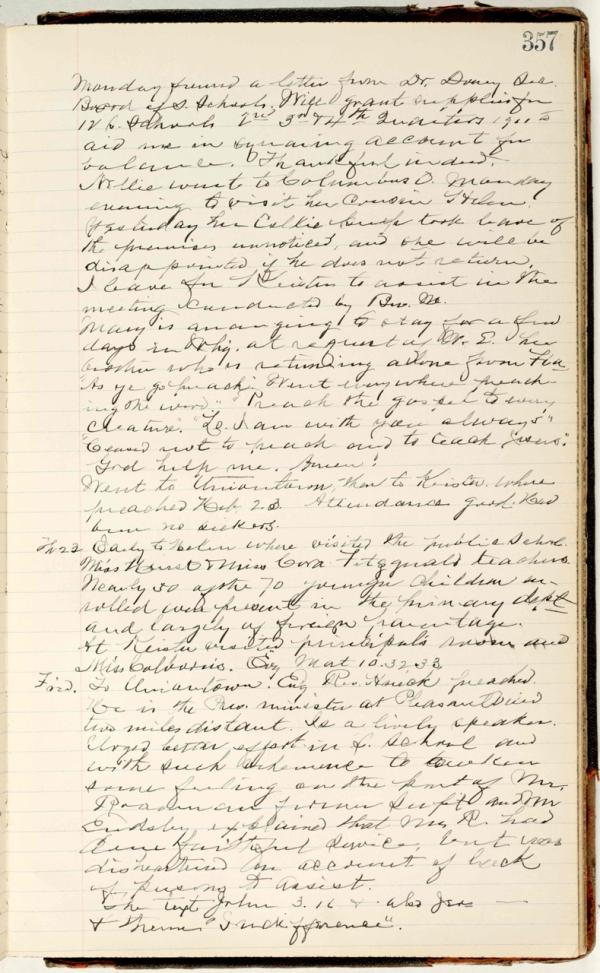 357
Monday found a letter from Dr. Sec.
Board of S. Schools. Will grant supplies for
12 S. Schools 2nd 3rd & 4th Quarters 1911
aid me in squaring account for
balance. Thankful indeed.
Nellie went to Columbus O. Monday
evening to visit her Cousin Helen.
Yesterday her Collie took leave of
the premises unnoticed, and she will be
disappointed if he does not return.
I leave for Keister to assist in the
meeting conducted by Bro. M.
Mary is arranging to stay for a few
days in at request of W. E. her
brother who is returning alone from Fla
"As ye go preach" Went everywhere preach-
ing the word." "Preach the gospel to every
creature." "Lo I am with you always"
"Ceased not to preach and to teach Jesus".
God help me. Amen!
Went to Uniontown, then to Keister where
preached Heb 2.3. Attendance good. Had
been no seekers.
Th 22 Early to Helen where visited the public School.
Miss & Miss Cora Fitzgerald teachers
Nearly 50 of the 70 younger children en-
rolled were present in the primary dept
and largely of foreign parentage.
At Keister visited principal's room and
Miss Evg Mat 10.32 33
Fri. To Uniontown. Evg Rev. Houck preached.
He is the minister at Pleasant
two miles distant. Is a lively speaker.
Urged better effort in S. School and
with such vehemence to awaken
some feeling on the part of Mr.
former Supt and Mr
Endsley explained that Mr. R. had
done faithful service, but was
disheartened on account of lack
of persons to assist.
The text John 3.16 & also
& theme "Indifference".